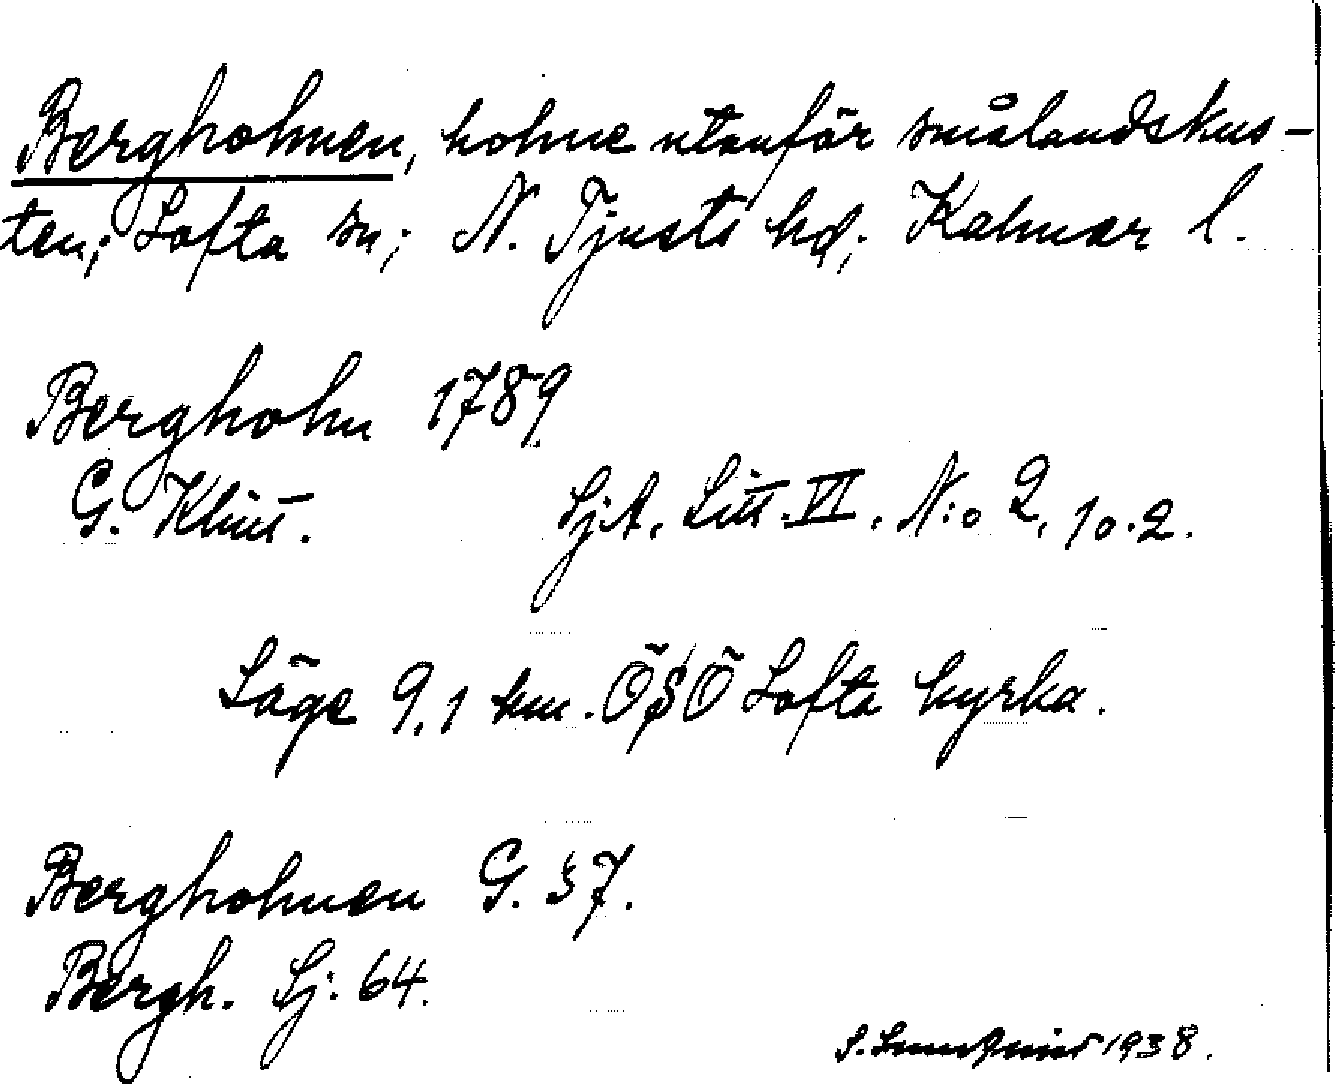 Bergholmen, holme utanför smålandskus-
ten; Lofta sn; N. Tjusts hd; Kalmar l.
Bergholm 1789
G. Klint. SjA. Litt. VI. N:o 2, 10.2.
Läge 9,1 km. ÖSÖ Lofta kyrka.
Bergholmen G. 57.
Bergh. Sj. 64.
1938.